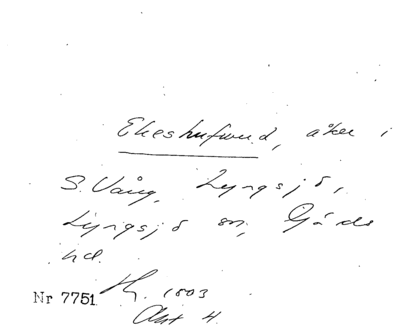 Ekeshufwud, åker i
S. Vång, Lyngsjö,
Lyngsjö sn, Gärds
hd.
Nr 7751. Hg. 1803
Akt 4.